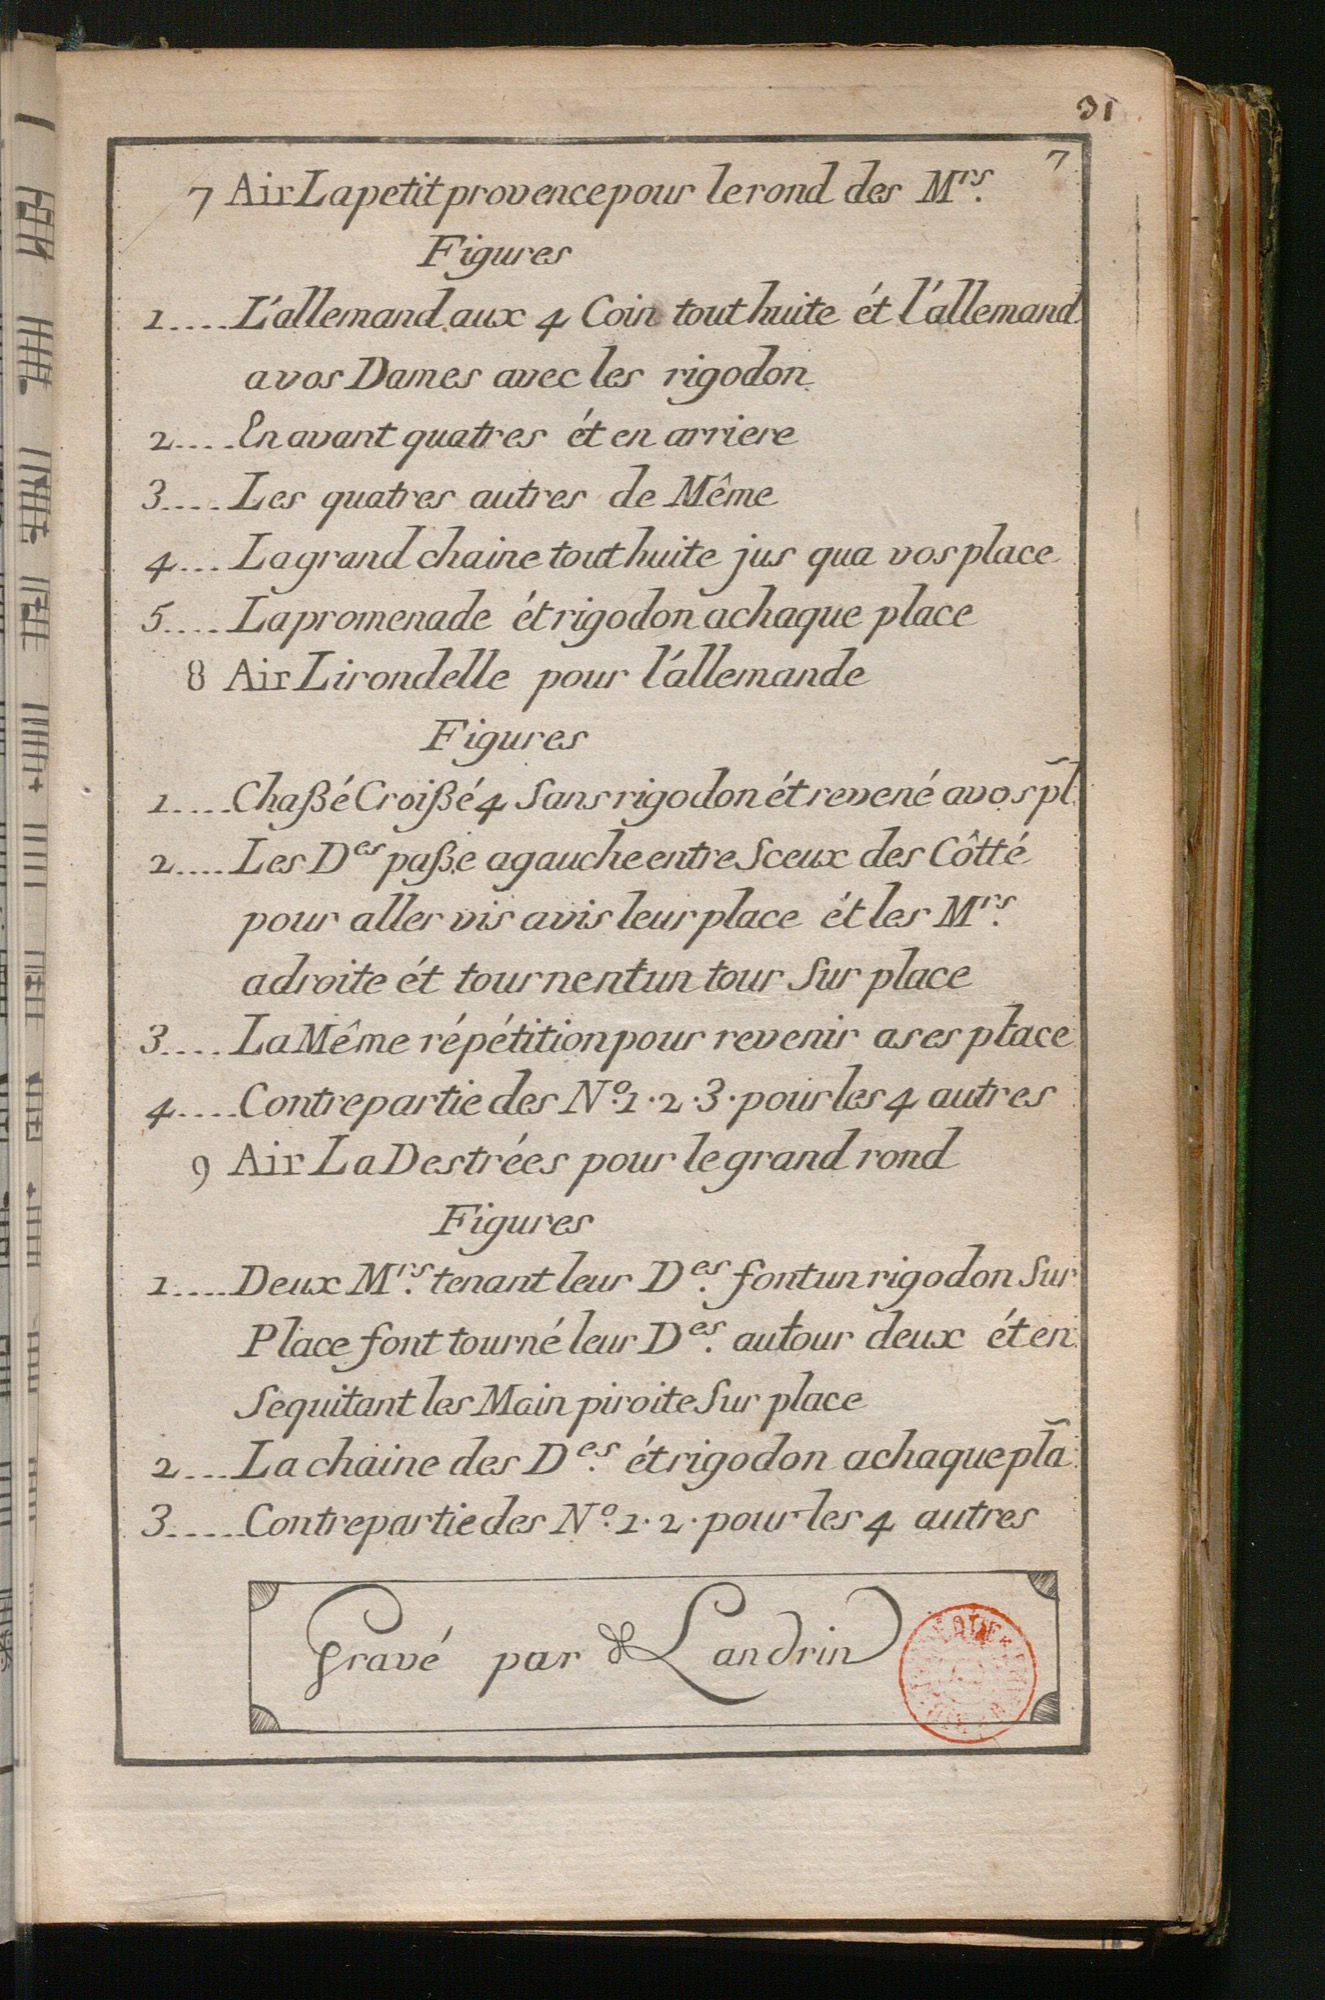 31
7
7 Air La petit provence pour le rond des Mrs.
Figures
1.... L'allemand aux 4 Coin tout huite ét l'allemand
a vos Dames avec les rigodon
2.... En avant quatres ét en arriere
3.... Les quatres autres de Même
4... La grand chaine tout huite jus qua vos place
5.... La promenade ét rigodon a chaque place
8 Air Lirondelle pour l'allemande
Figures
1.... Chaßé Croißé 4 Sans rigodon ét revené a vos pl̃
2.... Les Des paße a gauche entre Sceux des Côtté
pour aller vis avis leur place ét les Mrs.
a droite ét tournent un tour Sur place
3.... La Même répétition pour revenir a ses place
4.... Contrepartie des No. 1. 2. 3. pour les 4 autres
9 Air La Destrées pour le grand rond
Figures
1.... Deux Mrs. tenant leur Des. font un rigodon Sur
Place font tourné leur Des. autour deux ét en
Sequitant les Main piroite Sur place
2.... La chaine des Des. ét rigodon a chaque plã
3..... Contrepartie des No. 1. 2. pour les 4 autres
Gravé par Landrin